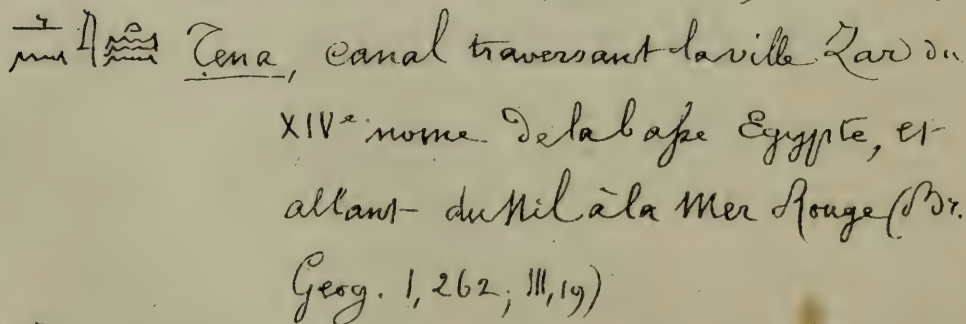 Tena, canal traversant la ville Zar du
XIVe nome de la basse Egypte, et
allant du Nil à la Mer Rouge (Br.
Geog. I, 262; III, 19)